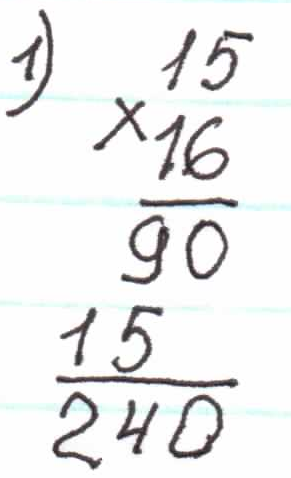 1) 15
×16
90
15
240